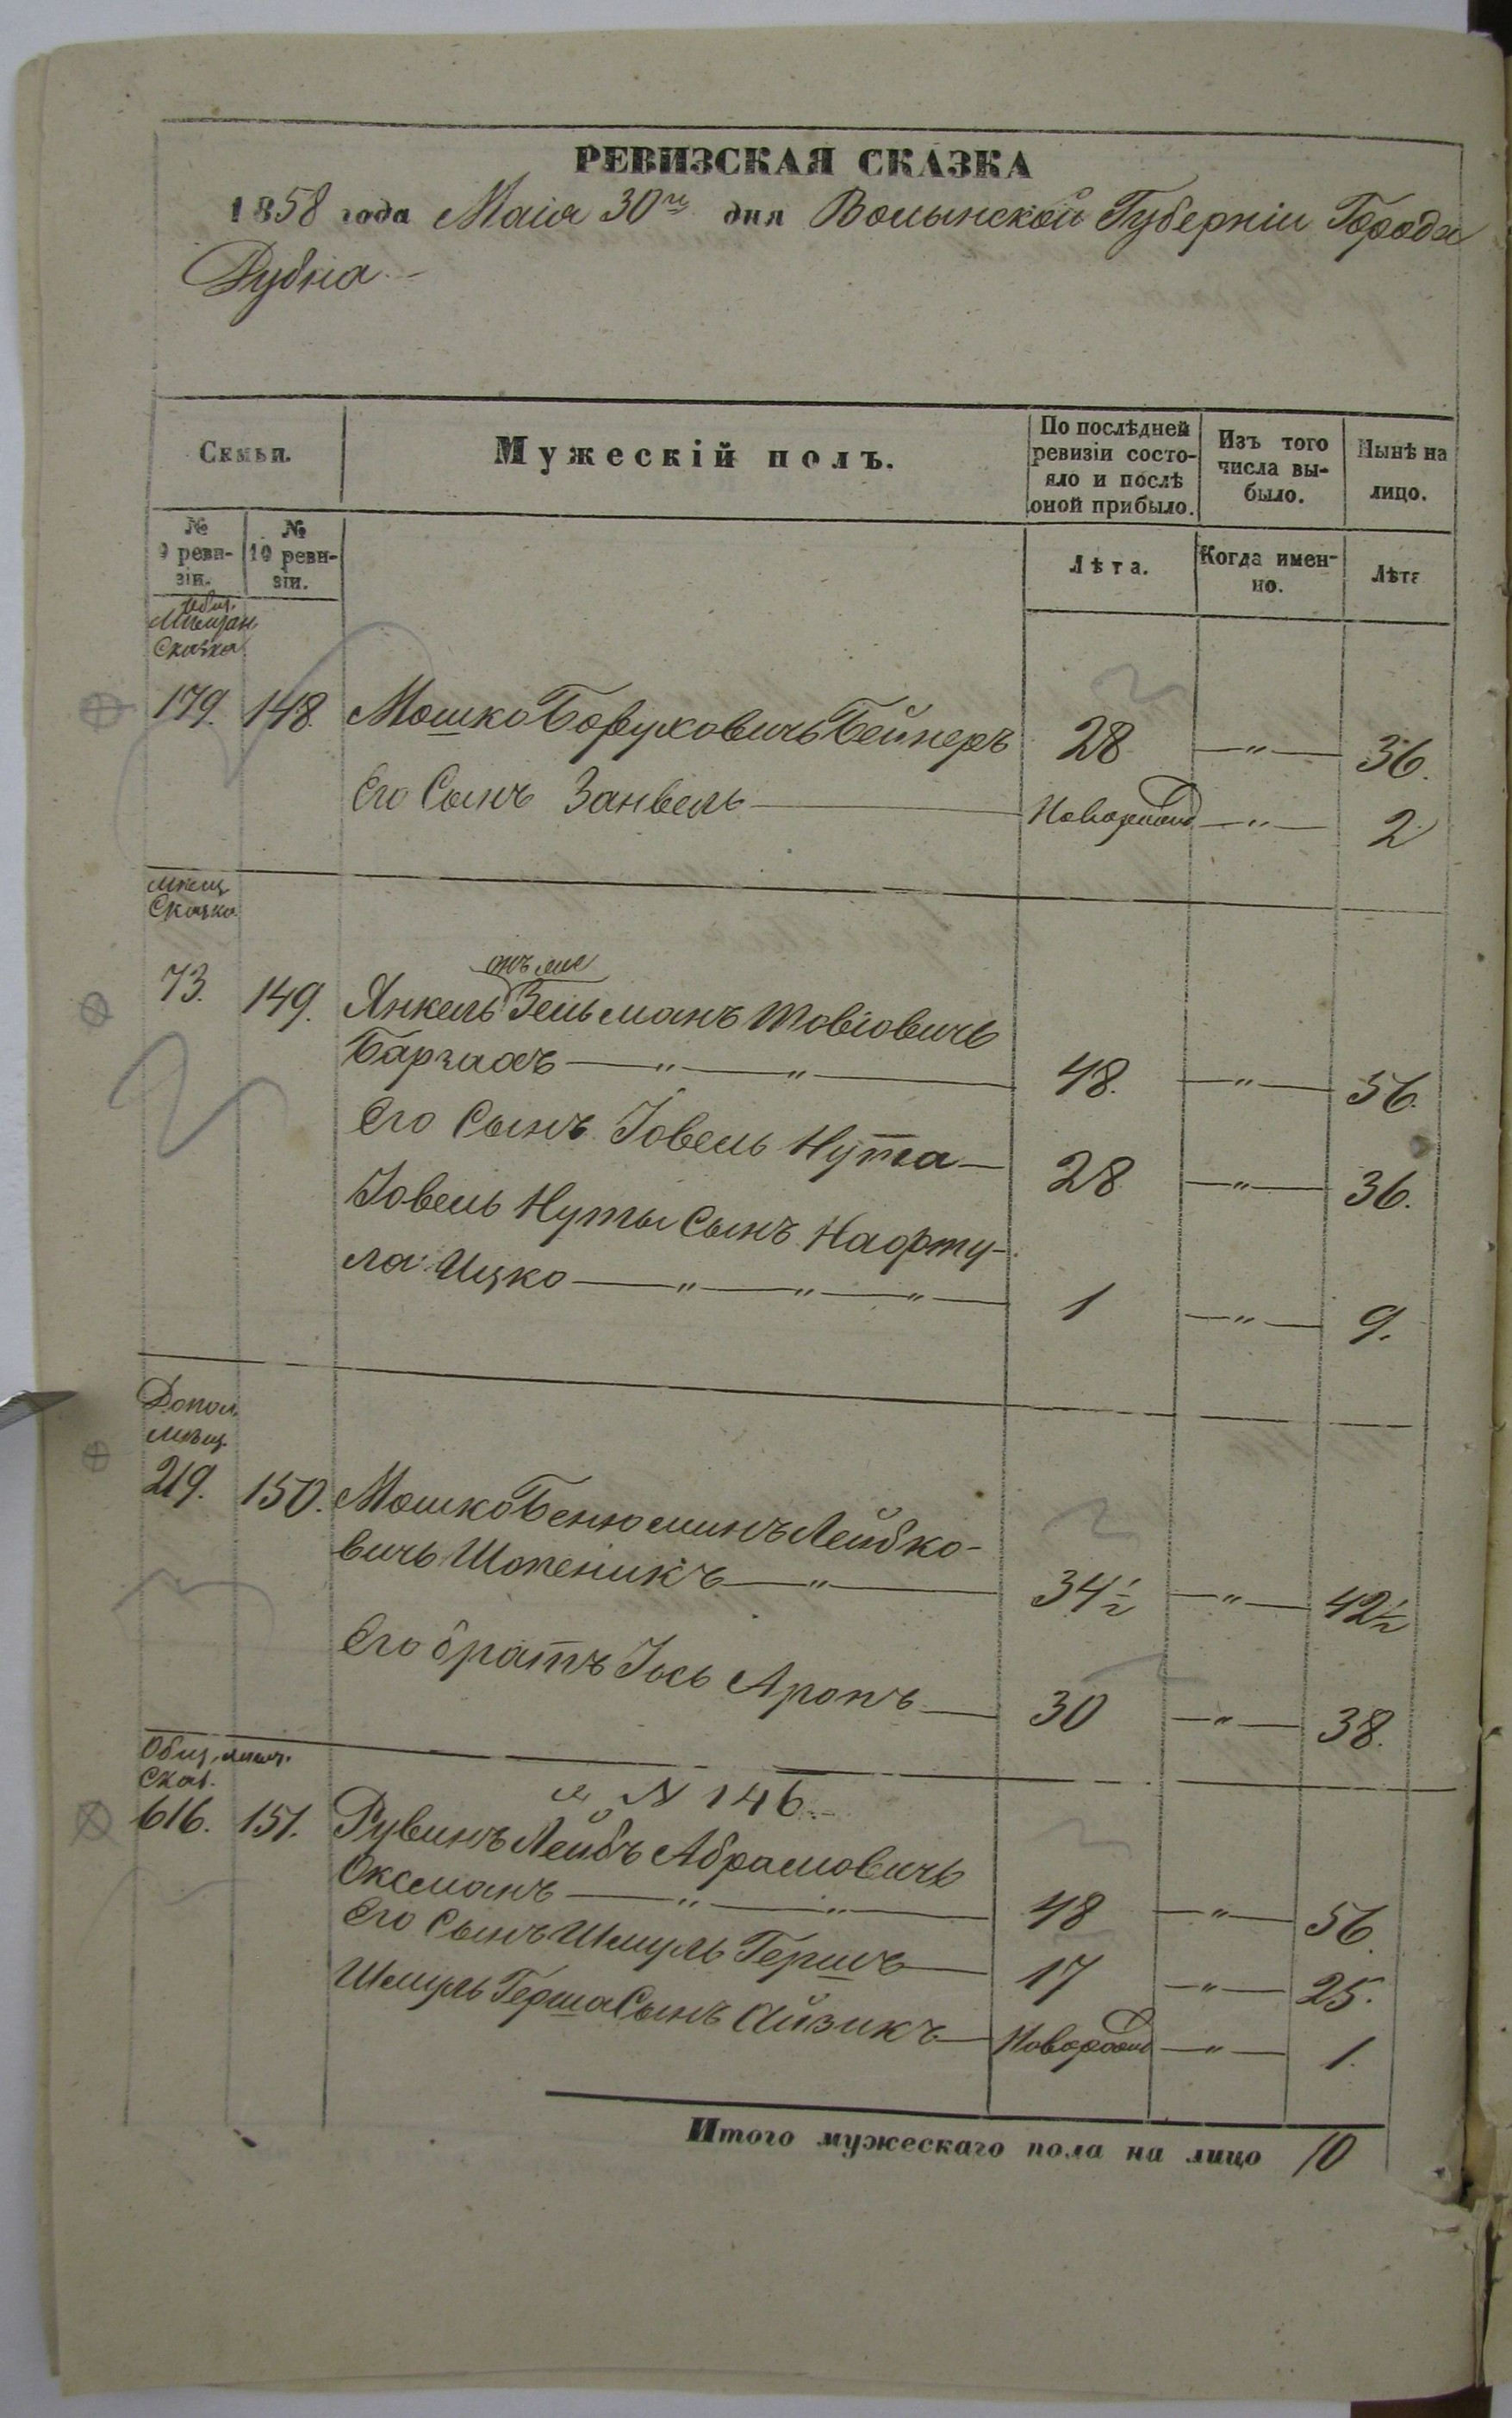 РЕВИЗСКАЯ СКАЗКА
1858 года Маія 30го дня Волынской Губерніи Города
Дубна
Семьи.
Мужескій полъ.
По послѣдней ревизіи состо-яло и послѣ оной прибыло.
Изъ того числа вы-было.
Нынѣ на лицо.
№ 9 реви-зіи.
№ 10 реви-зіи.
Лѣта.
Когда имен-но.
Лѣта
Общ.
Мѣщан
Сказка
179. 148. Мошко Боруховичъ Бейнеръ 28 —„— 36.
Его Сынъ Занвель — Новорожд —„— 2
Мѣщ
Сказка
73. 149. Янкель онъ же Зельманъ Товіовичъ
Баргадъ —„—„— 48. —„— 56.
Его Сынъ Іовель Нута — 28 —„— 36.
Іовель Нуты Сынъ Нафту-
ла Ицко —„—„—„— 1 —„— 9.
Допол.
мѣщ.
219. 150. Мошко Бенюминъ Лейбко-
вичъ Шпеникъ —„— 34½ —„— 42½
Его братъ Іось Аронъ — 30 —„— 38.
Общ. мѣщ.
Сказ.
и № 146.
616. 151. Рувинъ Лейбъ Абрамовичъ
Оксманъ —„—„— 48 —„— 56.
Его Сынъ Шмуль Гершъ — 17 —„— 25.
Шмуль Герша Сынъ Айзикъ — Новорожд —„— 1.
Итого мужескаго пола на лицо 10